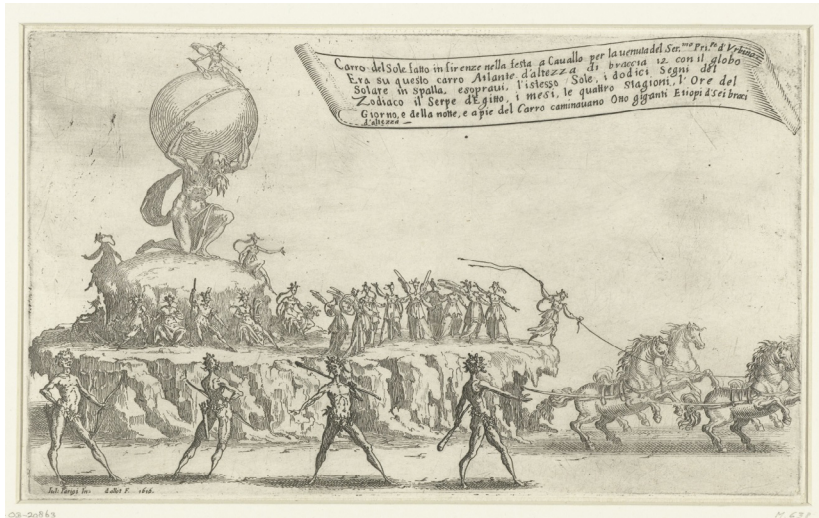 Carro del Sole fatto in firenze nella festa a Cauallo per la uenuta del Ser.mo Pri.pe d'Vrbino
Era su questo carro Atlante d'altezza di braccia 12 con il globo
Solare in spalla, esoprauì, l'istesso Sole, i dodici Segni del
Zodiaco il Serpe d'Egitto, i mesi, le quattro Stagioni, l'Ore del
Giorno, e della notte, e a pie del Carro caminauano Otto giganti Etiopi d'sei braci
d'altezza
Iul. Parigi In. Callot F. 1616.
03-20863
M. 638